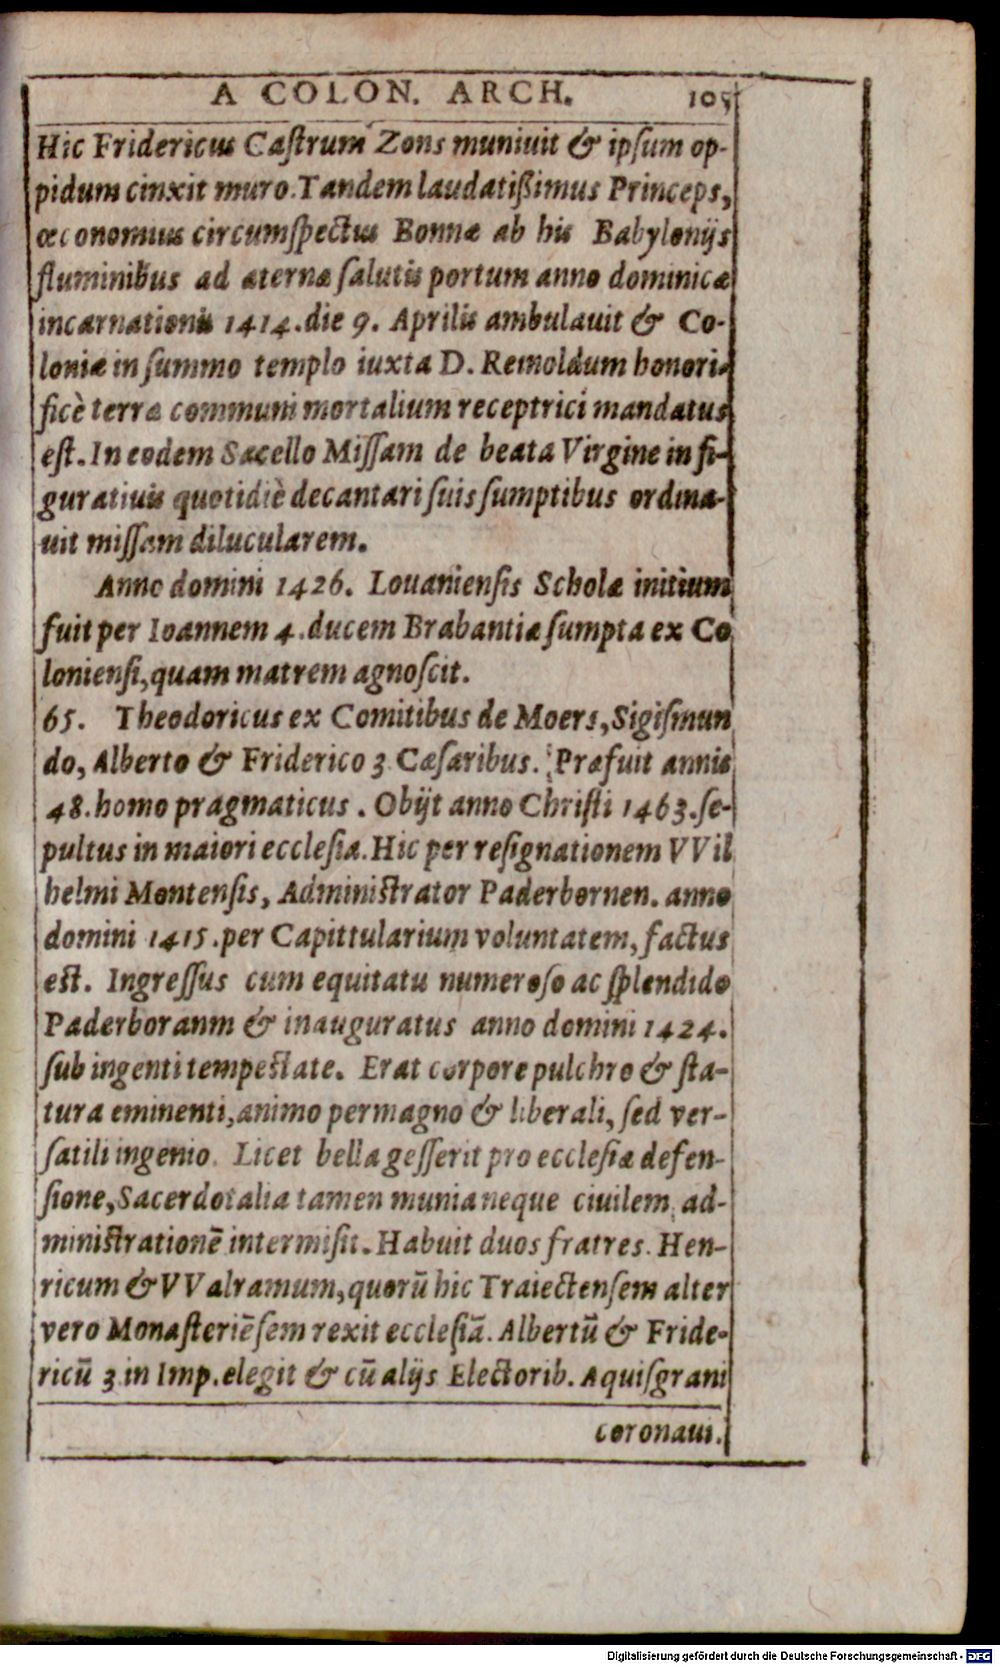 A COLON. ARCH. 105
Hic Fridericus Caſtrum Zons muniuit & ipſum op-
pidum cinxit muro. Tandem laudatißimus Princeps,
œconomus circumſpectus Bonnæ ab his Babylonijs
fluminibus ad æternæ ſalutis portum anno dominicæ
incarnationis 1414. die 9. Aprilis ambulauit & Co-
loniæ in ſummo templo iuxta D. Reinoldum honori-
ficè terræ communi mortalium receptrici mandatus
eſt. In eodem Sacello Miſſam de beata Virgine in fi-
guratiuis quotidiè decantari ſuis ſumptibus ordina-
uit miſſam dilucularem.
Anno domini 1426. Louaniensis Scholæ initium
fuit per Ioannem 4. ducem Brabantiæ ſumpta ex Co
lonienſi, quam matrem agnoſcit.
65. Theodoricus ex Comitibus de Moers, Sigiſmun
do, Alberto & Friderico 3 Cæſaribus. Præfuit annis
48. homo pragmaticus. Obijt anno Chriſti 1463. ſe-
pultus in maiori eccleſia. Hic per reſignationem VVil
helmi Montenſis, Adminiſtrator Paderbornen. anno
domini 1415. per Capittularium voluntatem, factus
eſt. Ingreſſus cum equitatu numeroſo ac ſplendido
Paderboranm & inauguratus anno domini 1424.
ſub ingenti tempeſtate. Erat corpore pulchro & ſta-
tura eminenti, animo permagno & liberali, ſed ver-
ſatili ingenio. Licet bella geſſerit pro eccleſiæ defen-
ſione, Sacerdotalia tamen munia neque ciuilem ad-
miniſtrationē intermiſit. Habuit duos fratres. Hen-
ricum & VValramum, quorū hic Traiectenſem alter
vero Monaſteriēſem rexit eccleſiā. Albertū & Fride-
ricū 3 in Imp. elegit & cū alijs Electorib. Aquiſgrani
coronaui.
Digitalisierung gefördert durch die Deutsche Forschungsgemeinschaft - DFG